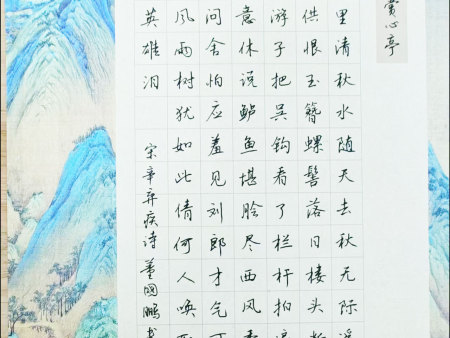 赏心亭
里清秋水随天去秋无际
供恨玉簪螺髻落日楼头
游子把吴钩看了栏杆拍
意休说鲈鱼堪脍尽西风
问舍怕应羞见刘郎才气
风雨树犹如此倩何人唤
英雄泪
宋辛弃疾诗 董國鹏书